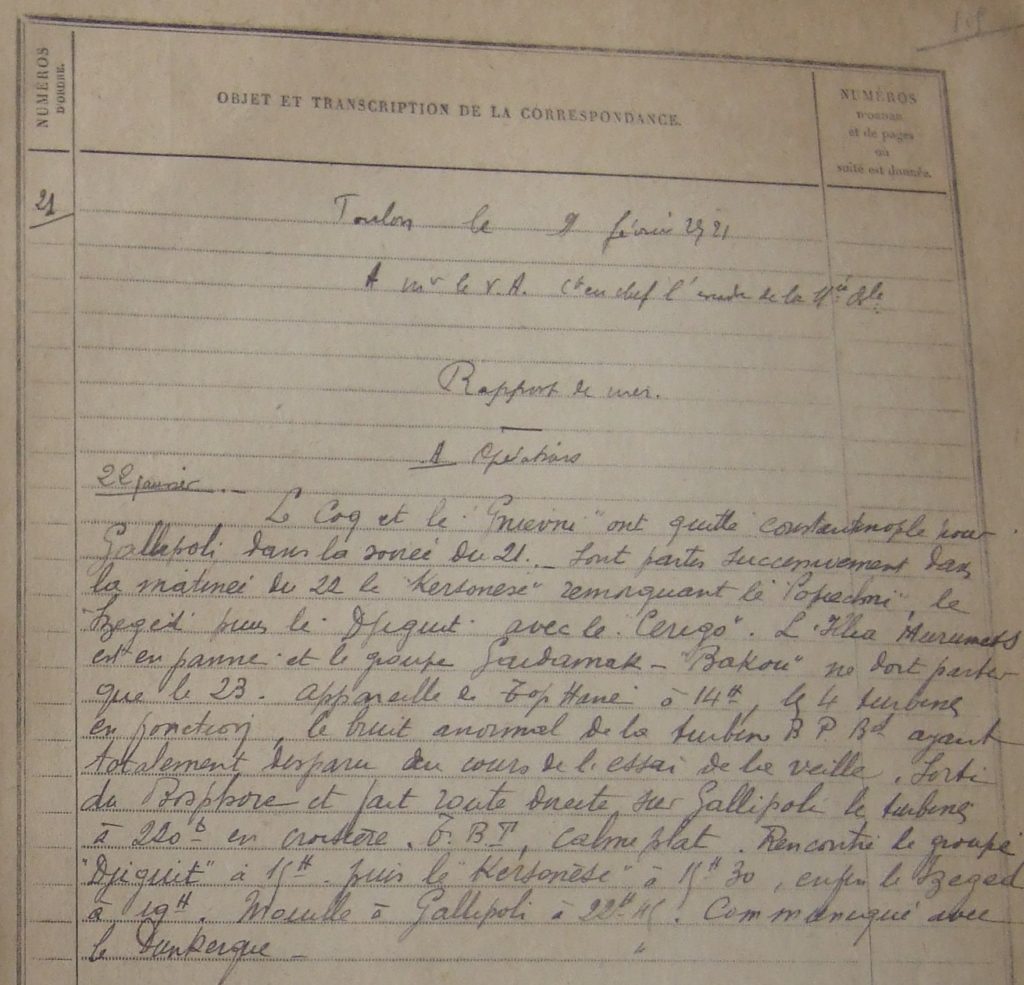 15
NUMÉROS
D'ORDRE.
OBJET ET TRANSCRIPTION DE LA CORRESPONDANCE.
NUMÉROS
D'ORDRE
et de pages
où
suite est donnée.
21
Toulon le 9 février 1921
A Mr le V.A. Ct en chef l'escadre de la Mée Ole
Rapport de mer.
A Opérations
22 janvier. -
Le Coq et le "Gnievni" ont quitté Constantinople pour
Gallipoli dans la soirée du 21. - Sont partis successivement dans
la matinée du 22 le "Kersonèse" remorquant le "Pospechni", le
Szeged puis le Djiguit avec le "Cerigo". L'Ilia Mourometz
est en panne et le groupe Gaidamak - "Bakou" ne doit partir
que le 23. Appareillé de Top Hané à 14H, les 4 turbines
en fonction, le bruit anormal de la turbine B P Bd ayant
totalement disparu au cours de l'essai de la veille. Sorti
du Bosphore et fait route directe sur Gallipoli les turbines
à 220t en croisière. T.B.T, calme plat. Rencontré le groupe
"Djiguit" à 15H puis le "Kersonèse" à 15H30, enfin le Szeged
à 19H. Mouillé à Gallipoli à 22H45. Communiqué avec
le Dunkerque -